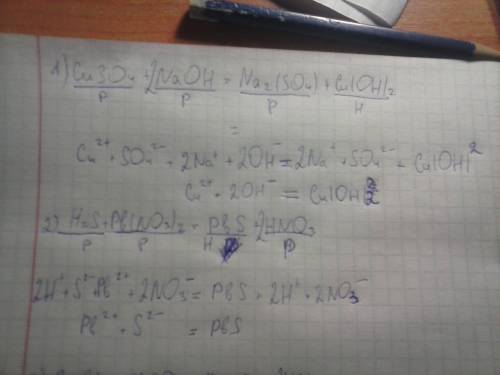 1) CuSO₄ + 2NaOH = Na₂(SO₄) + Cu(OH)₂
р р р н
=
Cu²⁺ + SO₄²⁻ + 2Na⁺ + 2OH⁻ = 2Na⁺ + SO₄²⁻ + Cu(OH)2
Cu²⁺ + 2OH⁻ = Cu(OH)2
2) H₂S + Pb(NO₃)₂ = PbS + 2HNO₃
р р н р
2H⁺ + S²⁻ + Pb²⁺ + 2NO₃⁻ = PbS + 2H⁺ + 2NO₃⁻
Pb²⁺ + S²⁻ = PbS